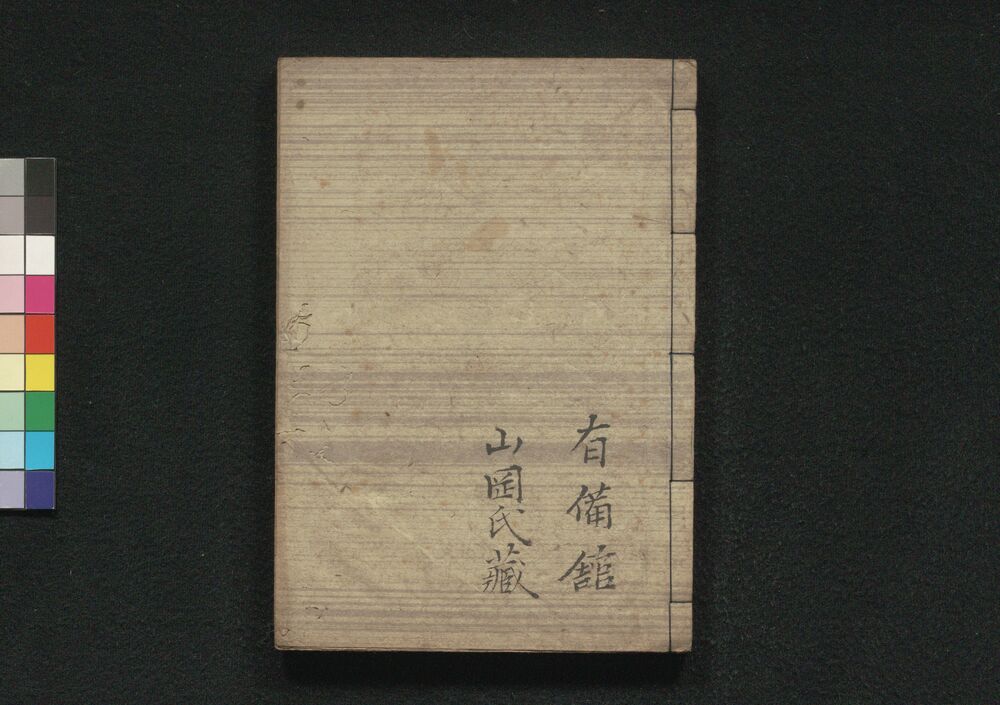 有備舘
山岡氏藏